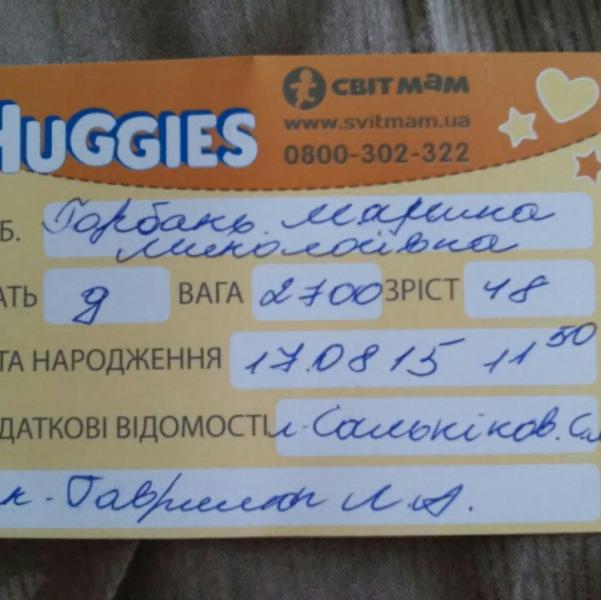 HUGGIES
СВІТ МАМ
www.svitmam.ua
0800-302-322
Б. Горбань Марина
Миколаївна
АТЬ д ВАГА 2700 ЗРІСТ 48
ТА НАРОДЖЕННЯ 17.08 15 11 50
ДАТКОВІ ВІДОМОСТІ л. Сальніков. С.
к. Гаврилюк Л. А.